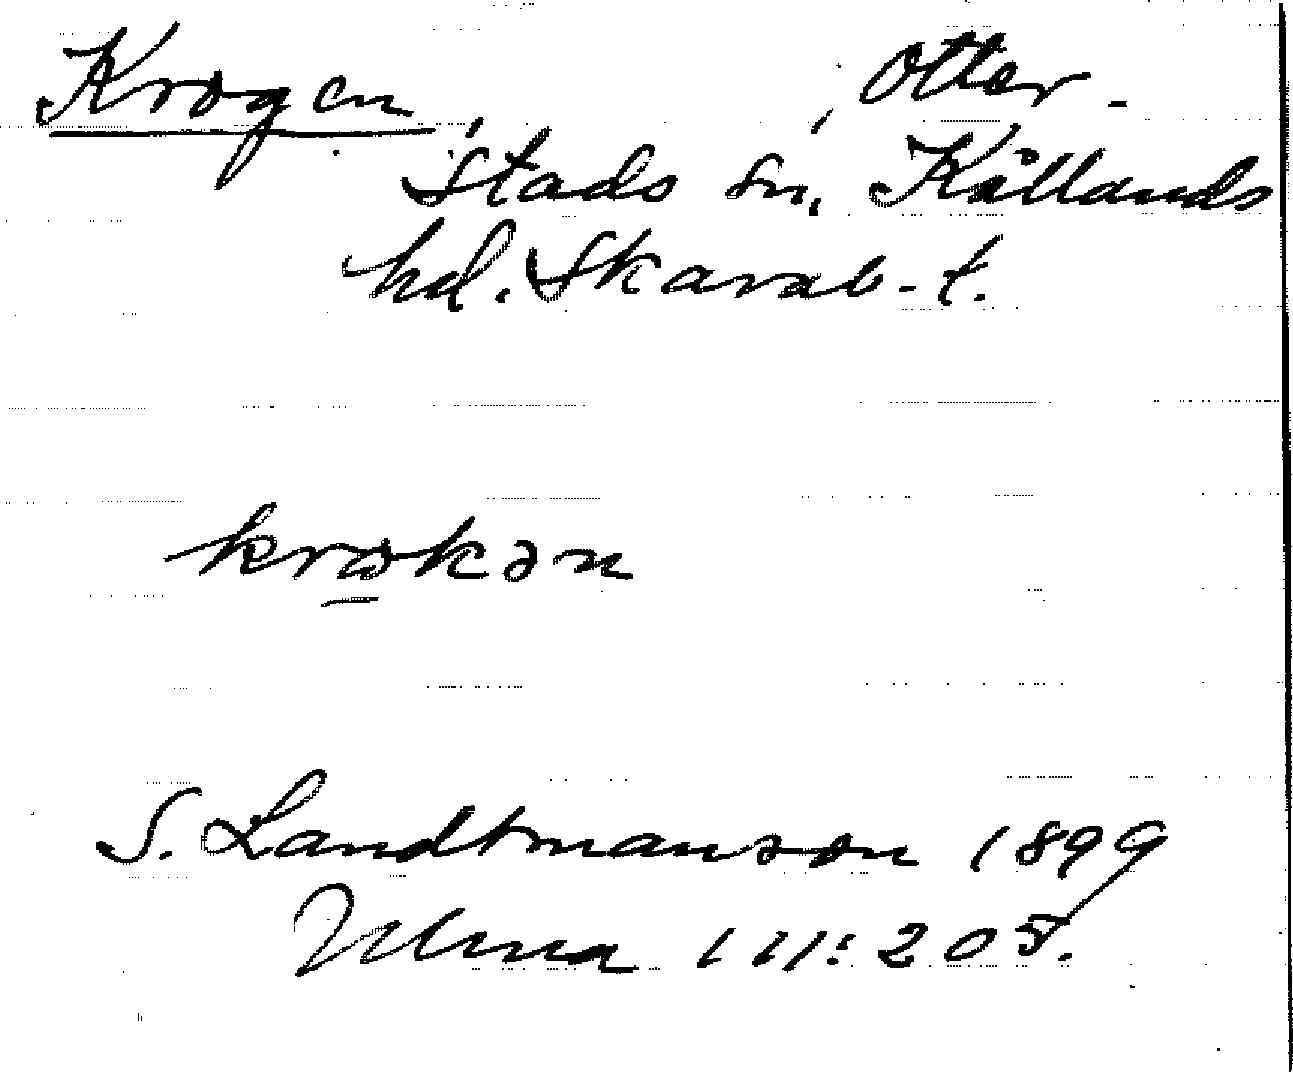 Krogen, Otter-
stads sn, Kållands
hd. Skarab. t.
krokən
S. Landtmanson 1899
111: 205.